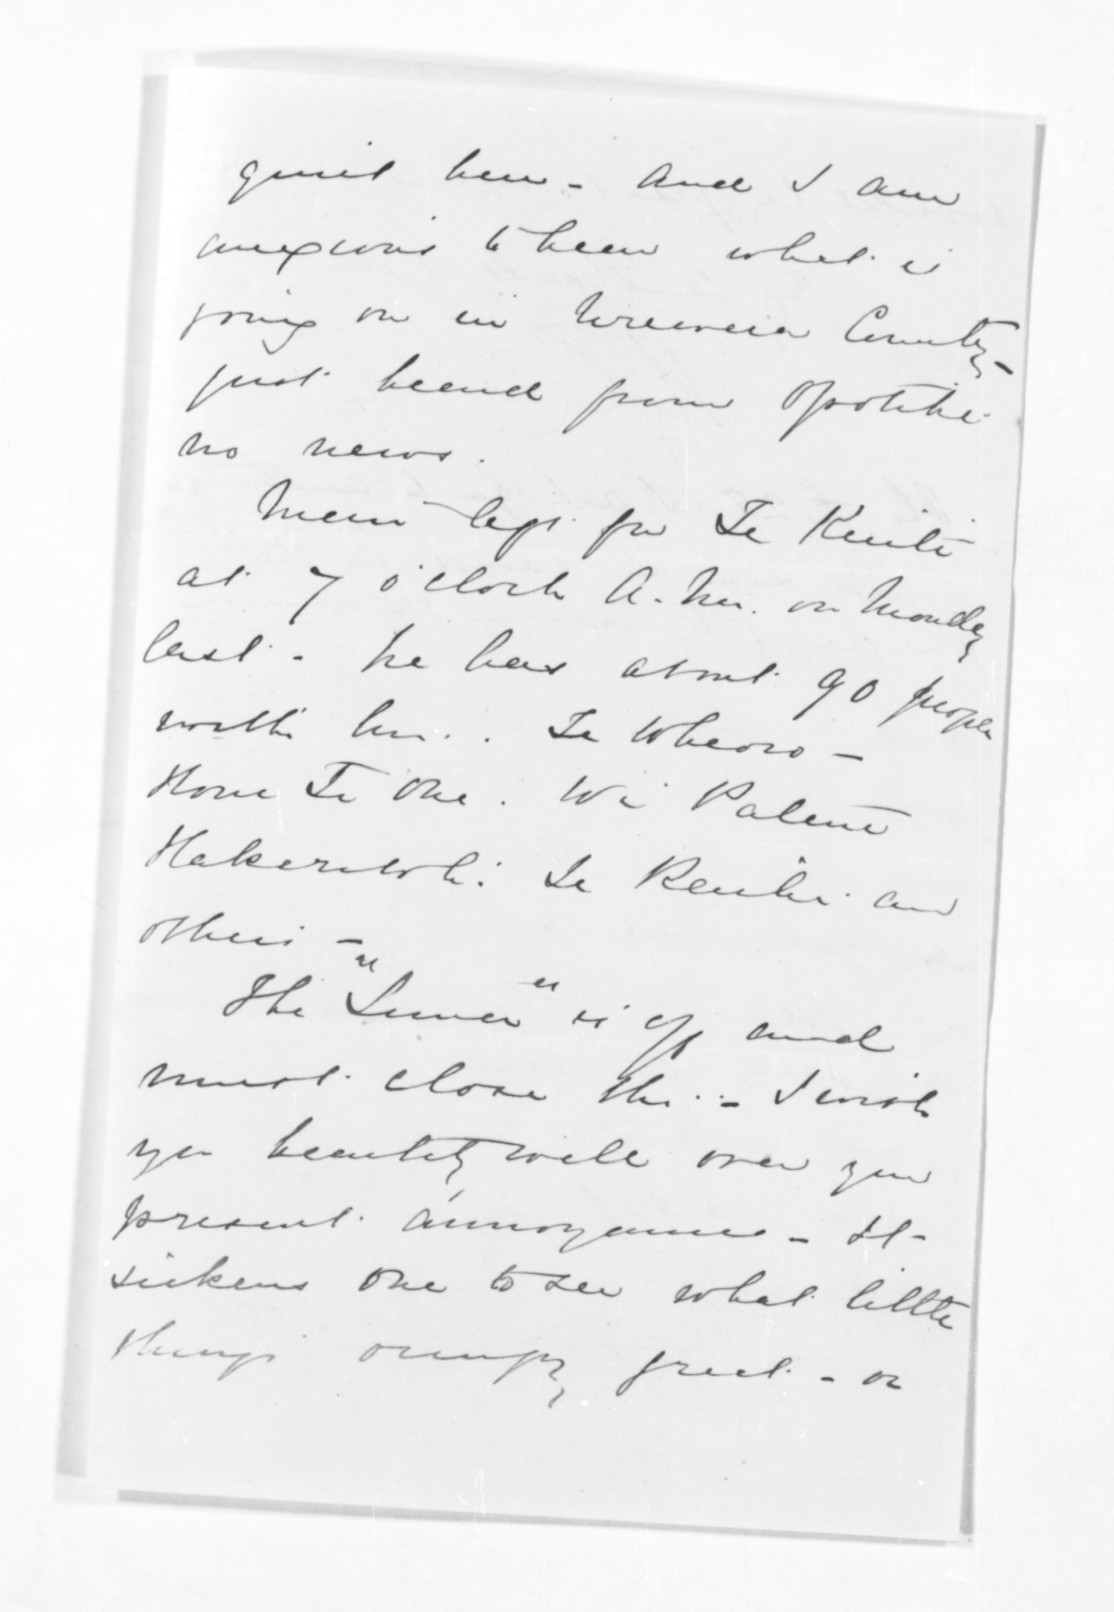 quiet here - and I am
anxious to hear what is
going on in Urewera Country -
just heard from Opotiki
no news.
Mair left for Te Kuiti
at 7 o'clock A.M. on Monday
last - he has about 90 people
with him. Te Wheoro -
Hone Te One. Wi Patene
Hakiriwhi. Te Reuihi and
others -
The "Luna" is off and
must close this - I wish
you heartily well over your
present annoyances - It
sickens one to see what little
things occupy great - or